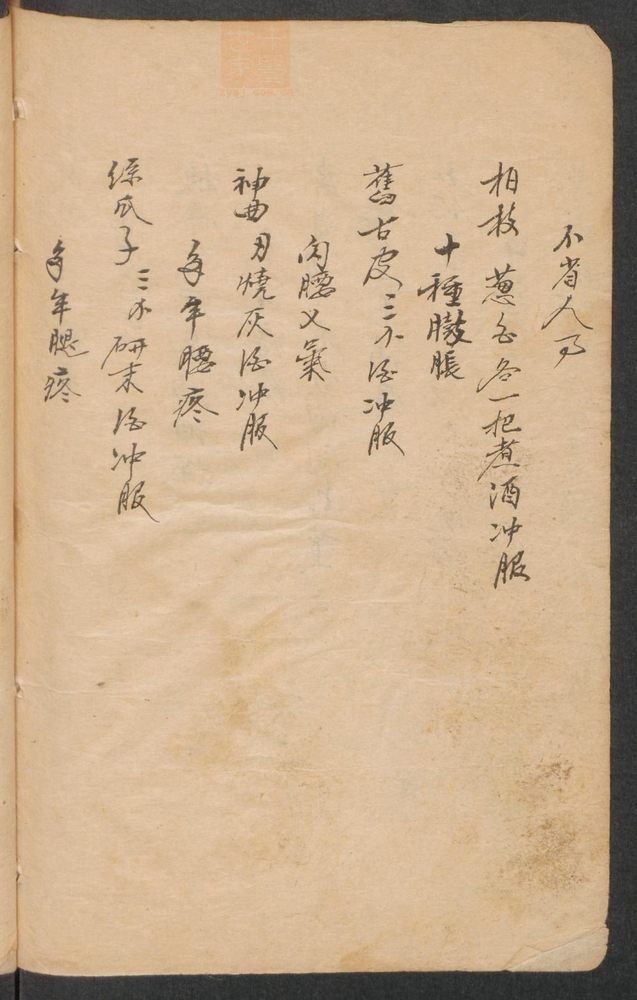 不省人事
柏枝 葱白各一把煮酒冲服
十種膨脹
舊古皮三个酒冲服
閃腰义氣
神曲 刃燒灰酒冲服
多年腰疼
絲瓜子 三个研末酒冲服
多年腿疼